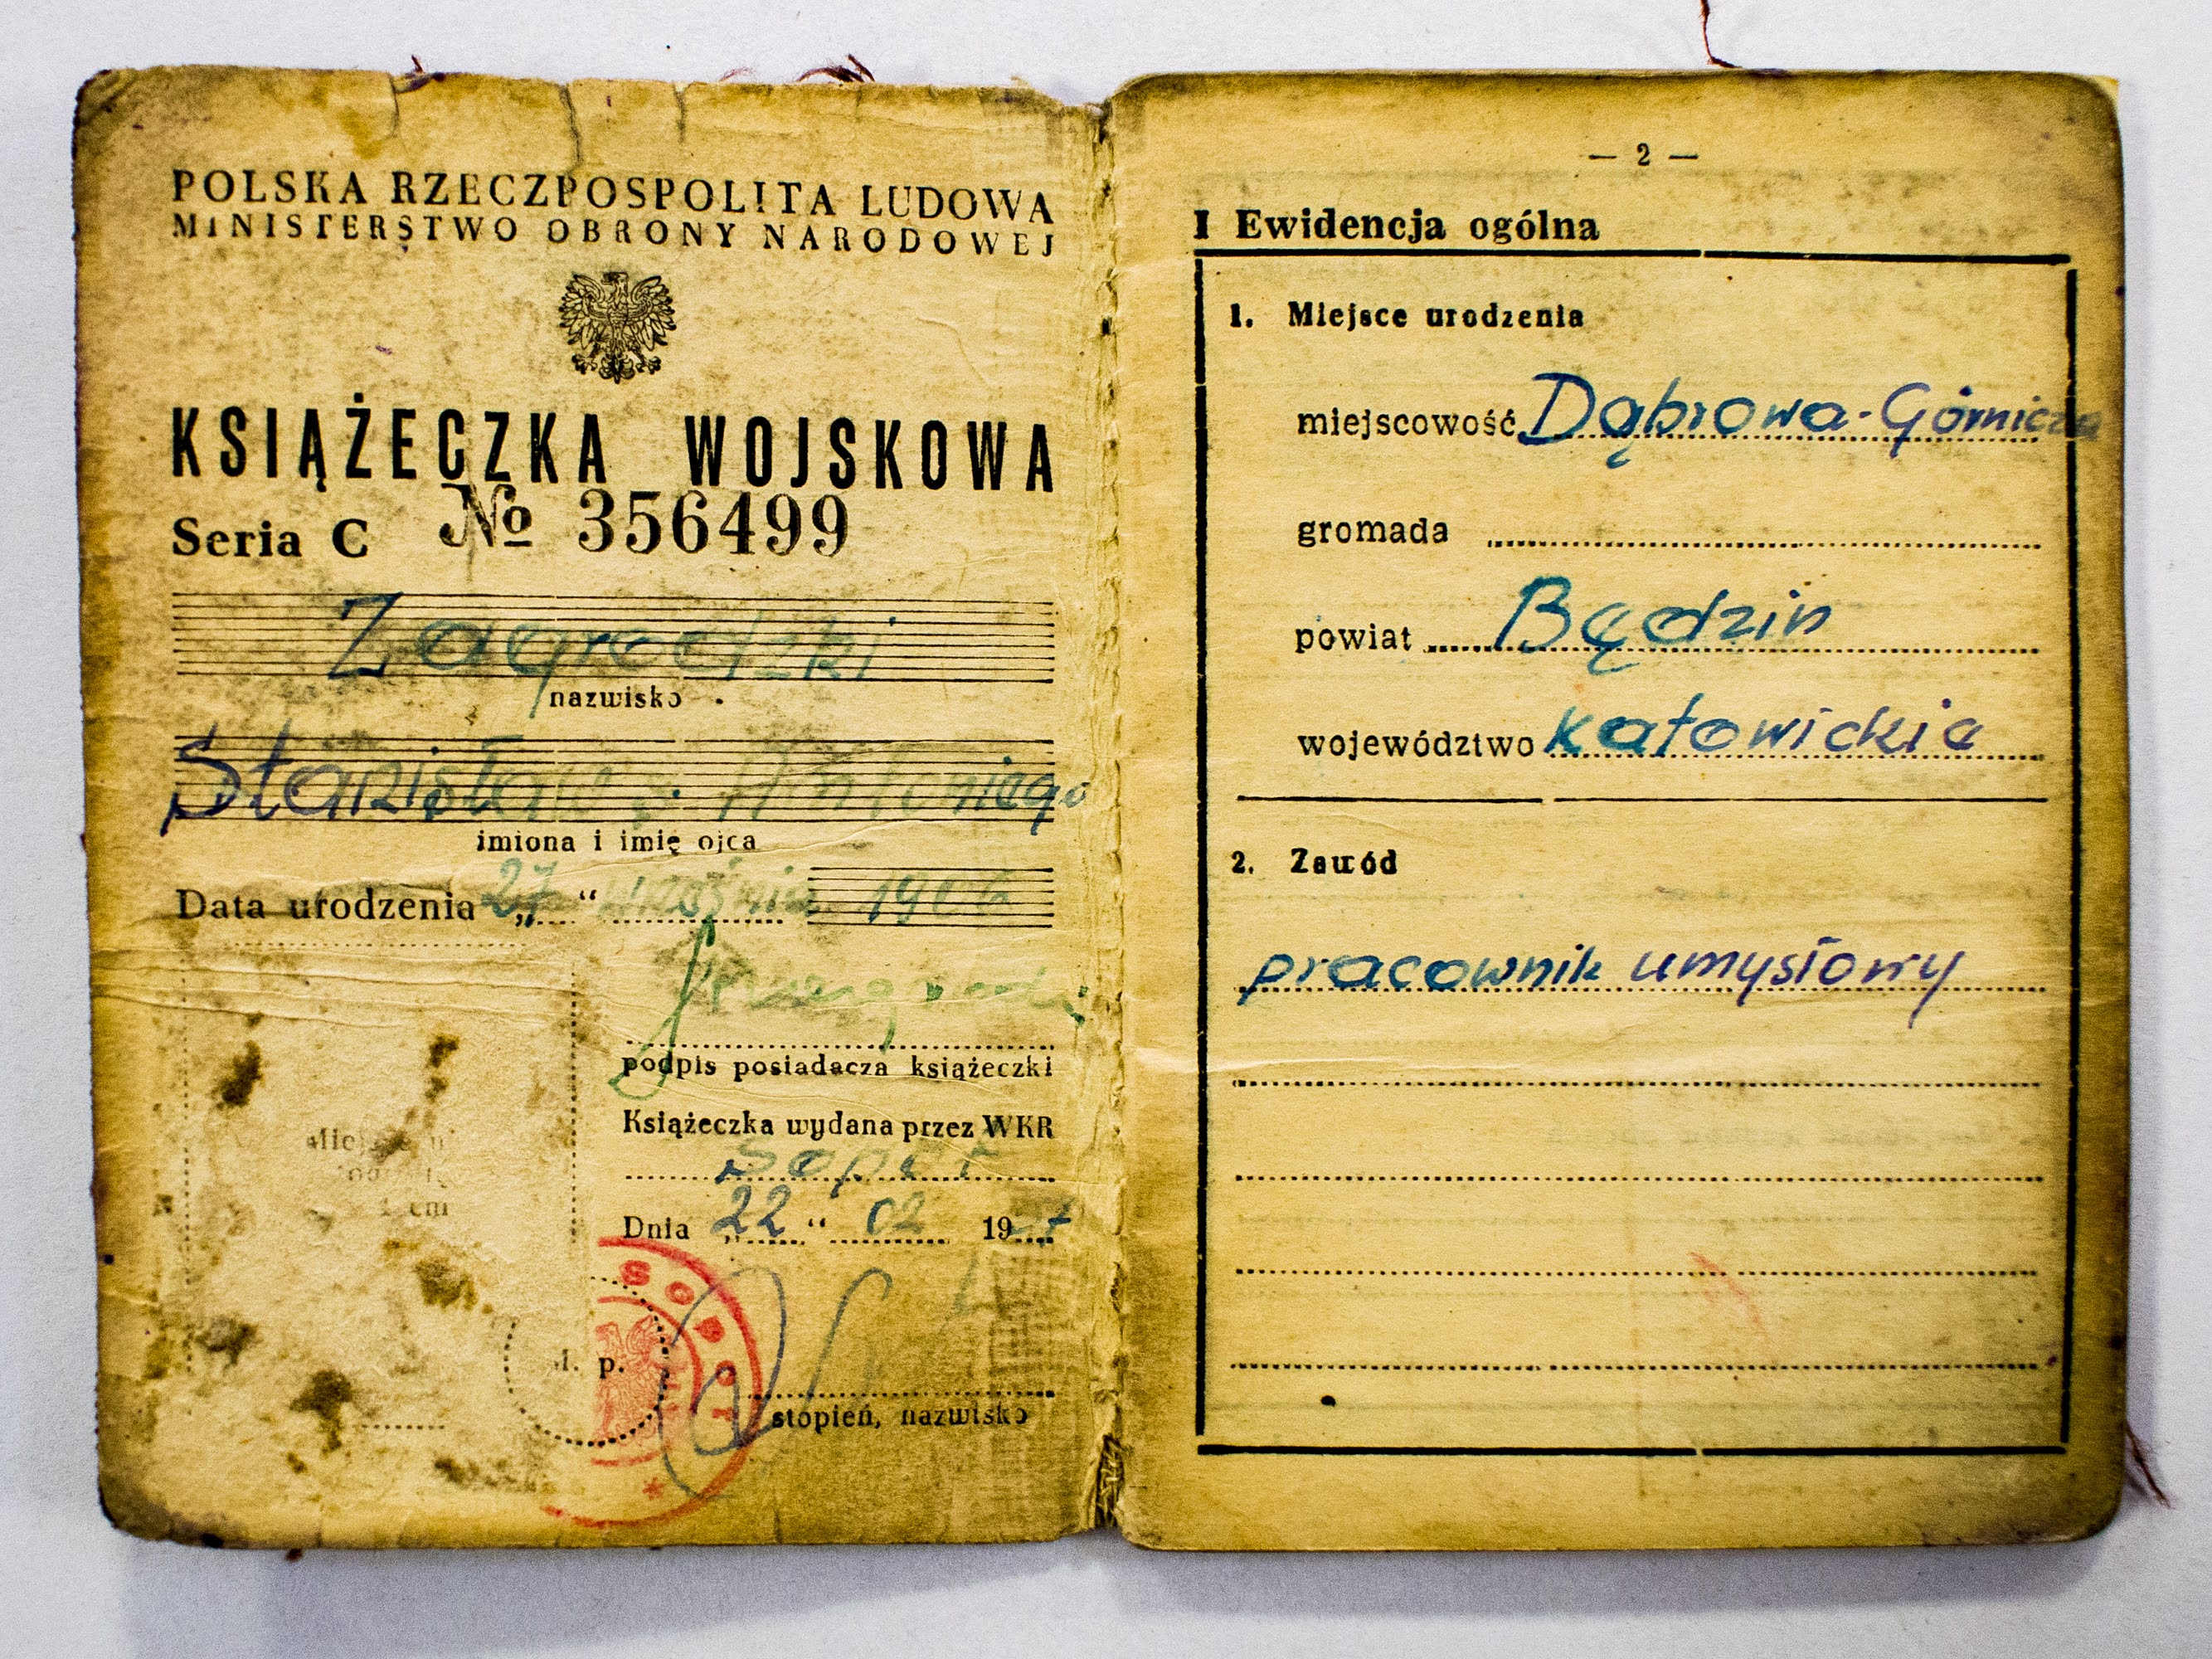 POLSKA RZECZPOSPOLITA LUDOWA
MINISTERSTWO OBRONY NARODOWEJ
KSIĄŻECZKA WOJSKOWA
Seria C № 356499
Zagrodzki
nazwisko
Stanisław Antoniego
imiona i imię ojca
Data urodzenia „27“ września 1906
podpis posiadacza książeczki
Książeczka wydana przez WKR
Sopot
Dnia „22“ 02 19
SOPOT
M. p.
stopień, nazwisko
— 2 —
I Ewidencja ogólna
1. Miejsce urodzenia
miejscowość Dąbrowa-Górnicza
gromada
powiat Będzin
województwo Katowickie
2. Zawód
pracownik umysłowy